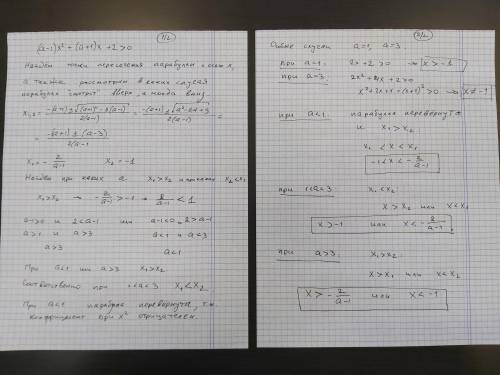 1/2
(a-1)x² + (a+1)x +2 > 0
Найдём точки пересечения параболы с осью x,
а также рассмотрим в каких случая
парабола "смотрит" вверх, а когда вниз
x₁,₂ = (-(a+1) ± √((a+1)² - 8(a-1))) / 2(a-1) = (-(a+1) ± √(a² - 6a + 9)) / 2(a-1) =
= (-(a+1) ± (a-3)) / 2(a-1)
x₁ = - 2/(a-1) x₂ = -1
Найдём при каких a x₁>x₂ и при каких x₂<x₁
x₁>x₂ → - 2/(a-1) > -1 → 2/(a-1) < 1
a-1>0 и 2<a-1 или a-1<0 и 2>a-1
a>1 и a>3 a<1 и a<3
a>3 a<1
При a<1 или a>3 x₁>x₂
Соответственно при 1<a<3 x₁<x₂
При a<1 парабола перевернута, т.к.
коэффициент при x² отрицателен.
2/2
Особые случаи a=1, a=3.
при a=1 2x+2>0 → x>-1
при a=3 2x²+4x+2>0
x²+2x+1=(x+1)²>0 → x≠-1
при a<1 парабола перевернута
и x₁>x₂
x₂<x<x₁
-1<x<- 2/(a-1)
при 1<a<3 x₁<x₂
x>x₂ или x<x₁
x>-1 или x<- 2/(a-1)
при a>3 x₁>x₂
x>x₁ или x<x₂
x>- 2/(a-1) или x<-1